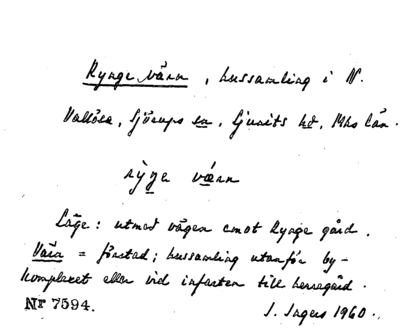 Rynge värn, hussamling i N.
Vallösa, Sjörups sn, Ljunits hd, Mhs län.
rỳŋe væ̀rn
Läge: utmed vägen emot Rynge gård.
Värn = förstad; hussamling utanför by-
komplexet eller vid infarten till herregård.
Nr 7594. I. Ingers 1960.